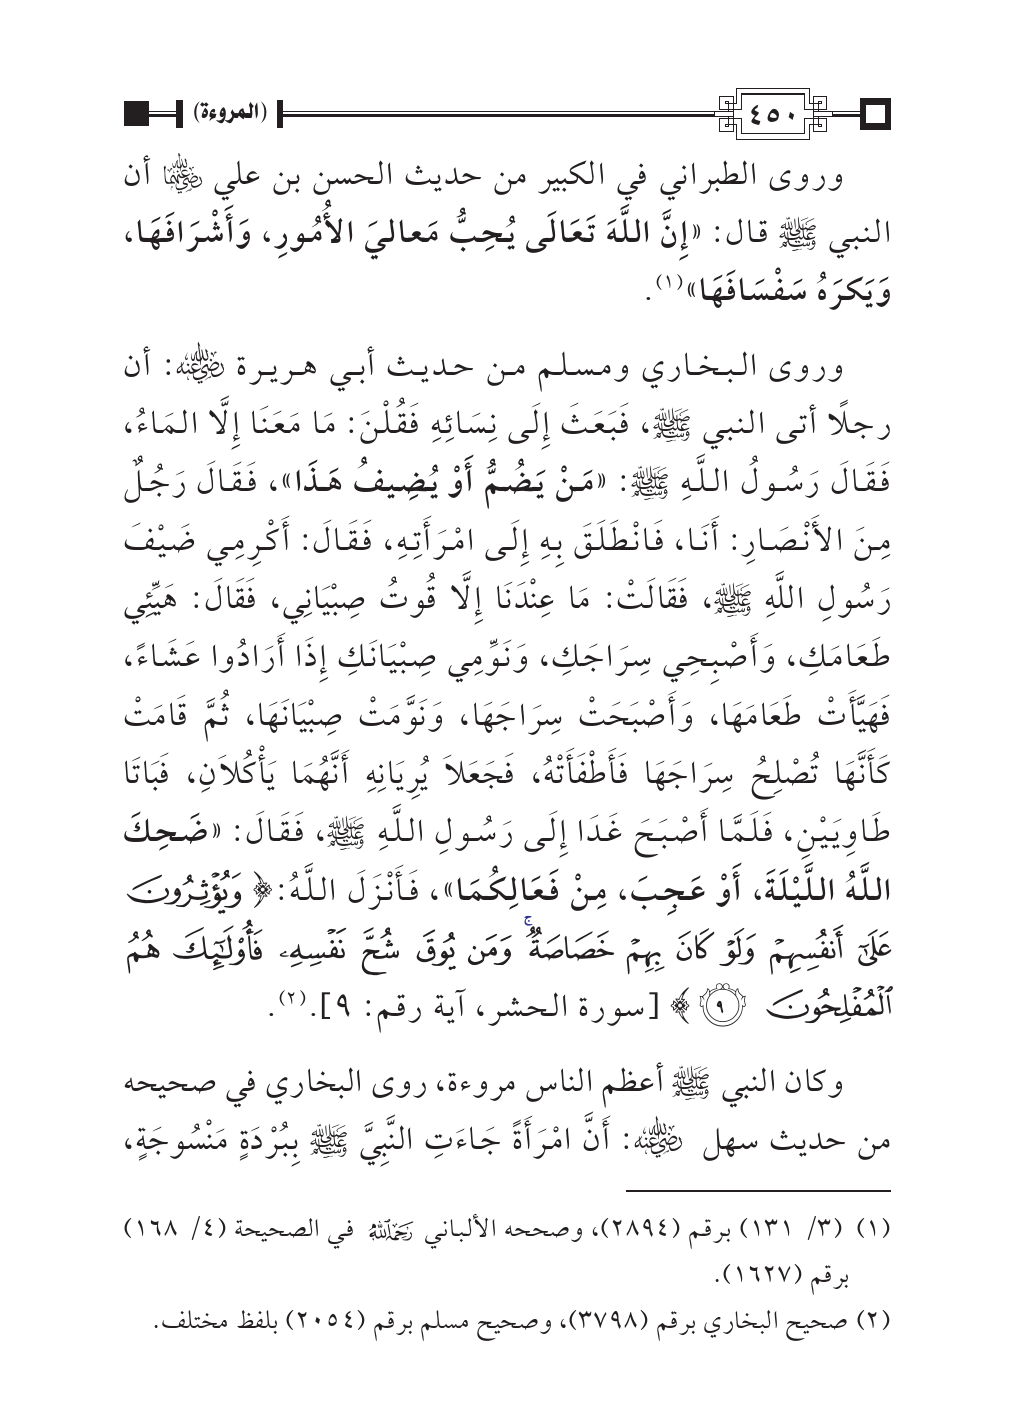 ٤٥٠ (المروءة)
وروى الطبراني في الكبير من حديث الحسن بن علي رضي الله عنهما أن
النبي ﷺ قال: «إِنَّ اللَّهَ تَعَالَى يُحِبُّ مَعاليَ الأُمُورِ، وَأَشْرَافَهَا،
وَيَكرَهُ سَفْسَافَهَا»(١).
وروى البخاري ومسلم من حديث أبي هريرة رضي الله عنه: أن
رجلًا أتى النبي ﷺ، فَبَعَثَ إِلَى نِسَائِهِ فَقُلْنَ: مَا مَعَنَا إِلَّا المَاءُ،
فَقَالَ رَسُولُ اللَّهِ ﷺ: «مَنْ يَضُمُّ أَوْ يُضِيفُ هَذَا»، فَقَالَ رَجُلٌ
مِنَ الأَنْصَارِ: أَنَا، فَانْطَلَقَ بِهِ إِلَى امْرَأَتِهِ، فَقَالَ: أَكْرِمِي ضَيْفَ
رَسُولِ اللَّهِ ﷺ، فَقَالَتْ: مَا عِنْدَنَا إِلَّا قُوتُ صِبْيَانِي، فَقَالَ: هَيِّئِي
طَعَامَكِ، وَأَصْبِحِي سِرَاجَكِ، وَنَوِّمِي صِبْيَانَكِ إِذَا أَرَادُوا عَشَاءً،
فَهَيَّأَتْ طَعَامَهَا، وَأَصْبَحَتْ سِرَاجَهَا، وَنَوَّمَتْ صِبْيَانَهَا، ثُمَّ قَامَتْ
كَأَنَّهَا تُصْلِحُ سِرَاجَهَا فَأَطْفَأَتْهُ، فَجَعَلاَ يُرِيَانِهِ أَنَّهُمَا يَأْكُلاَنِ، فَبَاتَا
طَاوِيَيْنِ، فَلَمَّا أَصْبَحَ غَدَا إِلَى رَسُولِ اللَّهِ ﷺ، فَقَالَ: «ضَحِكَ
اللَّهُ اللَّيْلَةَ، أَوْ عَجِبَ، مِنْ فَعَالِكُمَا»، فَأَنْزَلَ اللَّهُ: ﴿وَيُؤْثِرُونَ
عَلَىٰٓ أَنفُسِهِمْ وَلَوْ كَانَ بِهِمْ خَصَاصَةٌ ۚ وَمَن يُوقَ شُحَّ نَفْسِهِۦ فَأُو۟لَٰٓئِكَ هُمُ
ٱلْمُفْلِحُونَ ٩﴾ [سورة الحشر، آية رقم: ٩].(٢).
وكان النبي ﷺ أعظم الناس مروءة، روى البخاري في صحيحه
من حديث سهل رضي الله عنه: أَنَّ امْرَأَةً جَاءَتِ النَّبِيَّ ﷺ بِبُرْدَةٍ مَنْسُوجَةٍ،
(١) (٣/ ١٣١) برقم (٢٨٩٤)، وصححه الألباني رحمه الله في الصحيحة (٤/ ١٦٨)
برقم (١٦٢٧).
(٢) صحيح البخاري برقم (٣٧٩٨)، وصحيح مسلم برقم (٢٠٥٤) بلفظ مختلف.